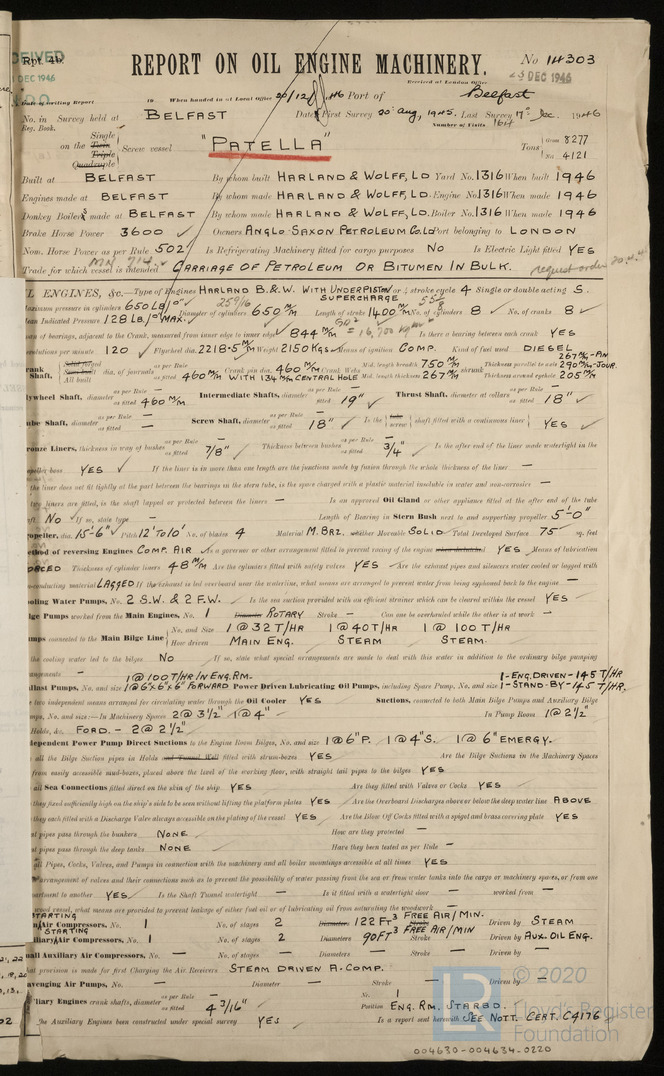 Rpt. 4b.
REPORT ON OIL ENGINE MACHINERY.
No 14303
DEC 1946
Received at London Office
DEC 1946
Date of writing Report 19 When handed in at Local Office 20/12/ 46 Port of Belfast
No. in Survey held at BELFAST Date, First Survey 20th Aug, 1945. Last Survey 17th Dec. 1946
Reg. Book. Number of Visits 164
Single
on the Twin Screw vessel "PATELLA" Tons Gross 8277
Triple Net 4121
Quadruple
Built at BELFAST By whom built HARLAND & WOLFF, LD Yard No. 1316 When built 1946
Engines made at BELFAST By whom made HARLAND & WOLFF, LD. Engine No. 1316 When made 1946
Donkey Boilers made at BELFAST By whom made HARLAND & WOLFF, LD. Boiler No. 1316 When made 1946
Brake Horse Power 3600 Owners ANGLO-SAXON PETROLEUM Co Ld Port belonging to LONDON
Nom. Horse Power as per Rule 502 Is Refrigerating Machinery fitted for cargo purposes NO Is Electric Light fitted YES
MN 714
Trade for which vessel is intended CARRIAGE OF PETROLEUM OR BITUMEN IN BULK.
L ENGINES, &c. Type of Engines HARLAND B.& W. WITH UNDERPISTON SUPERCHARGE or ½ stroke cycle 4 Single or double acting S.
aximum pressure in cylinders 650 LB/□" Diameter of cylinders 650 M/M Length of stroke 1400 M/M No. of cylinders 8 No. of cranks 8
ean Indicated Pressure 128 LB/□" MAX.
of bearings, adjacent to the Crank, measured from inner edge to inner edge 844 M/M Is there a bearing between each crank YES
evolutions per minute 120 Flywheel dia. 2218·5 M/M Weight 2150 KGS Means of ignition COMP. Kind of fuel used DIESEL
rank Shaft, Solid forged Semi built All built dia. of journals as per Rule as fitted 460 M/M Crank pin dia. 460 M/M WITH 134 M/M CENTRAL HOLE Crank Webs Mid. length breadth 750 M/M Mid. length thickness 267 M/M shrunk Thickness parallel to axis 267 M/M-PIN 290 M/M-JOUR. Thickness around eyehole 205 M/M
lywheel Shaft, diameter as per Rule — as fitted 460 M/M Intermediate Shafts, diameter as per Rule — as fitted 19" Thrust Shaft, diameter at collars as per Rule — as fitted 18"
ube Shaft, diameter as per Rule — as fitted — Screw Shaft, diameter as per Rule — as fitted 18" Is the tube screw shaft fitted with a continuous liner YES
ronze Liners, thickness in way of bushes as per Rule — as fitted 7/8" Thickness between bushes as per Rule — as fitted 3/4" Is the after end of the liner made watertight in the
peller boss YES If the liner is in more than one length are the junctions made by fusion through the whole thickness of the liner —
the liner does not fit tightly at the part between the bearings in the stern tube, is the space charged with a plastic material insoluble in water and non-corrosive —
two liners are fitted, is the shaft lapped or protected between the liners — Is an approved Oil Gland or other appliance fitted at the after end of the tube
ft. NO If so, state type — Length of Bearing in Stern Bush next to and supporting propeller 5'-0"
opeller, dia. 15'-6" Pitch 12' to 10' No. of blades 4 Material M.BRZ. whether Moveable SOLID Total Developed Surface 75 sq. feet
ethod of reversing Engines COMP. AIR Is a governor or other arrangement fitted to prevent racing of the engine when declutched YES Means of lubrication
ORCED Thickness of cylinder liners 48 M/M Are the cylinders fitted with safety valves YES Are the exhaust pipes and silencers water cooled or lagged with
-conducting material LAGGED If the exhaust is led overboard near the waterline, what means are arranged to prevent water from being syphoned back to the engine —
ooling Water Pumps, No. 2 S.W. & 2 F.W. Is the sea suction provided with an efficient strainer which can be cleared within the vessel YES
lge Pumps worked from the Main Engines, No. 1 Diameter ROTARY Stroke — Can one be overhauled while the other is at work —
umps connected to the Main Bilge Line No. and Size 1 @ 32 T/HR 1 @ 40 T/HR 1 @ 100 T/HR
How driven MAIN ENG. STEAM STEAM.
the cooling water led to the bilges NO If so, state what special arrangements are made to deal with this water in addition to the ordinary bilge pumping
angements —
1 @ 100 T/HR IN ENG.RM. 1-ENG.DRIVEN-145 T/HR
llast Pumps, No. and size 1 @ 6"x6"x6" FORWARD Power Driven Lubricating Oil Pumps, including Spare Pump, No. and size 1-STAND-BY-145 T/HR.
two independent means arranged for circulating water through the Oil Cooler YES Suctions, connected to both Main Bilge Pumps and Auxiliary Bilge
mps, No. and size:—In Machinery Spaces 2 @ 3½" 1 @ 4" In Pump Room 1 @ 2½"
Holds, &c. FORD. - 2 @ 2½"
dependent Power Pump Direct Suctions to the Engine Room Bilges, No. and size 1 @ 6" P. 1 @ 4" S. 1 @ 6" EMERGY.
all the Bilge Suction pipes in Holds and Tunnel Well fitted with strum-boxes YES Are the Bilge Suctions in the Machinery Spaces
from easily accessible mud-boxes, placed above the level of the working floor, with straight tail pipes to the bilges YES
all Sea Connections fitted direct on the skin of the ship YES Are they fitted with Valves or Cocks YES
they fixed sufficiently high on the ship's side to be seen without lifting the platform plates YES Are the Overboard Discharges above or below the deep water line ABOVE
they each fitted with a Discharge Valve always accessible on the plating of the vessel YES Are the Blow Off Cocks fitted with a spigot and brass covering plate YES
at pipes pass through the bunkers NONE How are they protected —
at pipes pass through the deep tanks NONE Have they been tested as per Rule —
all Pipes, Cocks, Valves, and Pumps in connection with the machinery and all boiler mountings accessible at all times YES
arrangement of valves and their connections such as to prevent the possibility of water passing from the sea or from water tanks into the cargo or machinery spaces, or from one
partment to another YES Is the Shaft Tunnel watertight — Is it fitted with a watertight door — worked from —
wood vessel, what means are provided to prevent leakage of either fuel oil or of lubricating oil from saturating the woodwork —
STARTING
n Air Compressors, No. 1 No. of stages 2 Diameters 122 FT³ FREE AIR/MIN. Stroke Driven by STEAM
STARTING
iliary Air Compressors, No. 1 No. of stages 2 Diameters 90 FT³ FREE AIR/MIN Stroke Driven by AUX. OIL ENG.
all Auxiliary Air Compressors, No. — No. of stages — Diameters — Stroke — Driven by —
at provision is made for first Charging the Air Receivers STEAM DRIVEN A. COMP.
avenging Air Pumps, No. — Diameter — Stroke — Driven by
iliary Engines crank shafts, diameter as per Rule — as fitted 4 3/16" Nr. 1 Position ENG. RM. STARBD.
the Auxiliary Engines been constructed under special survey YES Is a report sent herewith SEE NOTT. CERT. C4176
© 2020
Lloyd's Register
Foundation
004630-004634-0220